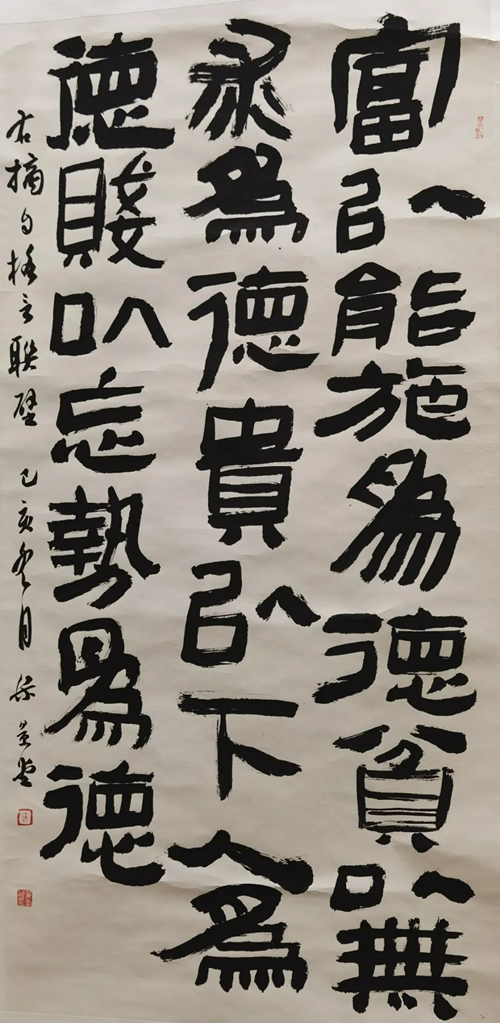 富以能施為德貧以無
求為德貴以下人為
德賤以忘勢為德
右摘句格言聯璧 己亥冬月